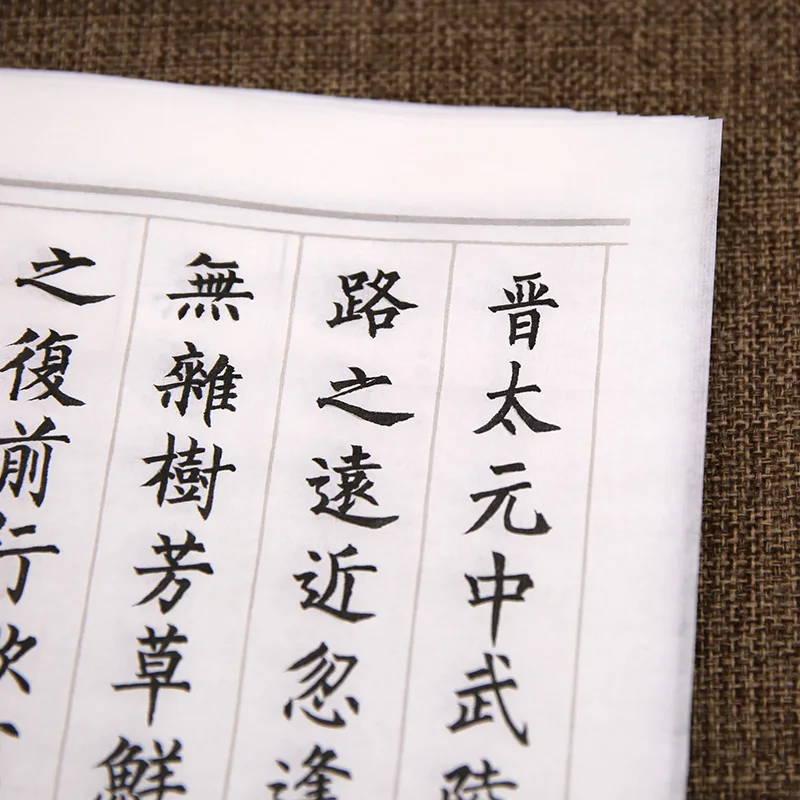 晋太元中武陵
路之遠近忽逢
無雜樹芳草鮮
之復前行欲